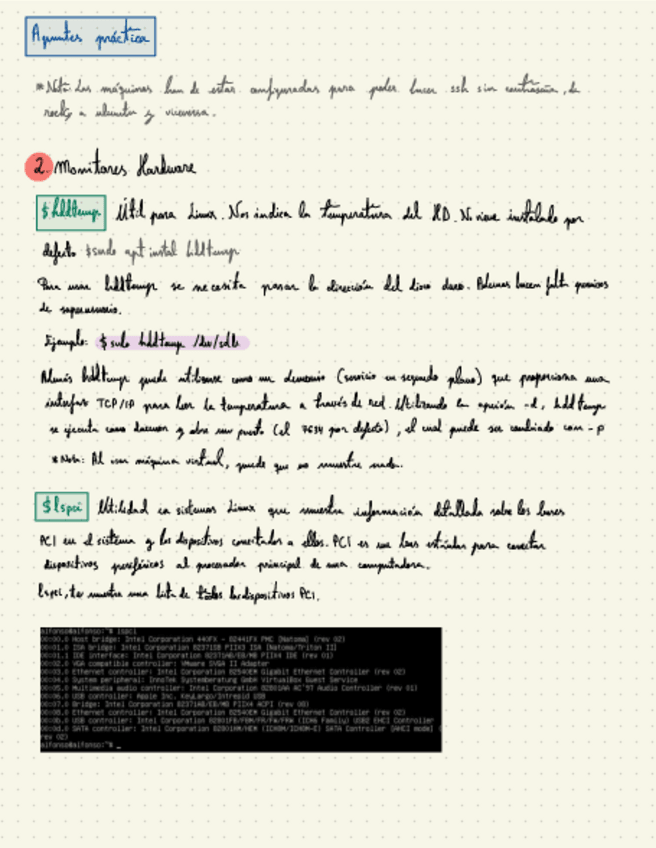 Apuntes práctica
*Nota: Las máquinas han de estar configuradas para poder hacer ssh sin contraseña, de
rocky a ubuntu y viceversa.
2. Monitores Hardware
$hddtemp Útil para Linux. Nos indica la temperatura del HD. No viene instalado por
defecto $sudo apt install hddtemp
Para usar hddtemp se necesita pasar la dirección del disco duro. Además hacen falta permisos
de superusuario.
Ejemplo: $sudo hddtemp /dev/sdb
Además hddtemp puede utilizarse como un demonio (servicio en segundo plano) que proporciona una
interfaz TCP/IP para leer la temperatura a través de red. Utilizando la opción -d, hddtemp
se ejecuta como daemon y abre un puerto (el 7634 por defecto), el cual puede ser cambiado con -p
*Nota: Al ser máquina virtual, puede que no muestre nada.
$lspci Utilidad en sistemas Linux que muestra información detallada sobre los buses
PCI en el sistema y los dispositivos conectados a ellos. PCI es un bus estándar para conectar
dispositivos periféricos al procesador principal de una computadora.
lspci, te muestra una lista de todos los dispositivos PCI.
alfonso@alfonso:~$ lspci
00:00.0 Host bridge: Intel Corporation 440FX - 82441FX PMC [Natoma] (rev 02)
00:01.0 ISA bridge: Intel Corporation 82371SB PIIX3 ISA [Natoma/Triton II]
00:01.1 IDE interface: Intel Corporation 82371AB/EB/MB PIIX4 IDE (rev 01)
00:02.0 VGA compatible controller: VMware SVGA II Adapter
00:03.0 Ethernet controller: Intel Corporation 82540EM Gigabit Ethernet Controller (rev 02)
00:04.0 System peripheral: InnoTek Systemberatung GmbH VirtualBox Guest Service
00:05.0 Multimedia audio controller: Intel Corporation 82801AA AC'97 Audio Controller (rev 01)
00:06.0 USB controller: Apple Inc. KeyLargo/Intrepid USB
00:07.0 Bridge: Intel Corporation 82371AB/EB/MB PIIX4 ACPI (rev 08)
00:08.0 Ethernet controller: Intel Corporation 82540EM Gigabit Ethernet Controller (rev 02)
00:0b.0 USB controller: Intel Corporation 82801FB/FBM/FR/FW/FRW (ICH6 Family) USB2 EHCI Controller
00:0d.0 SATA controller: Intel Corporation 82801HM/HEM (ICH8M/ICH8M-E) SATA Controller [AHCI mode] (
rev 02)
alfonso@alfonso:~$ _